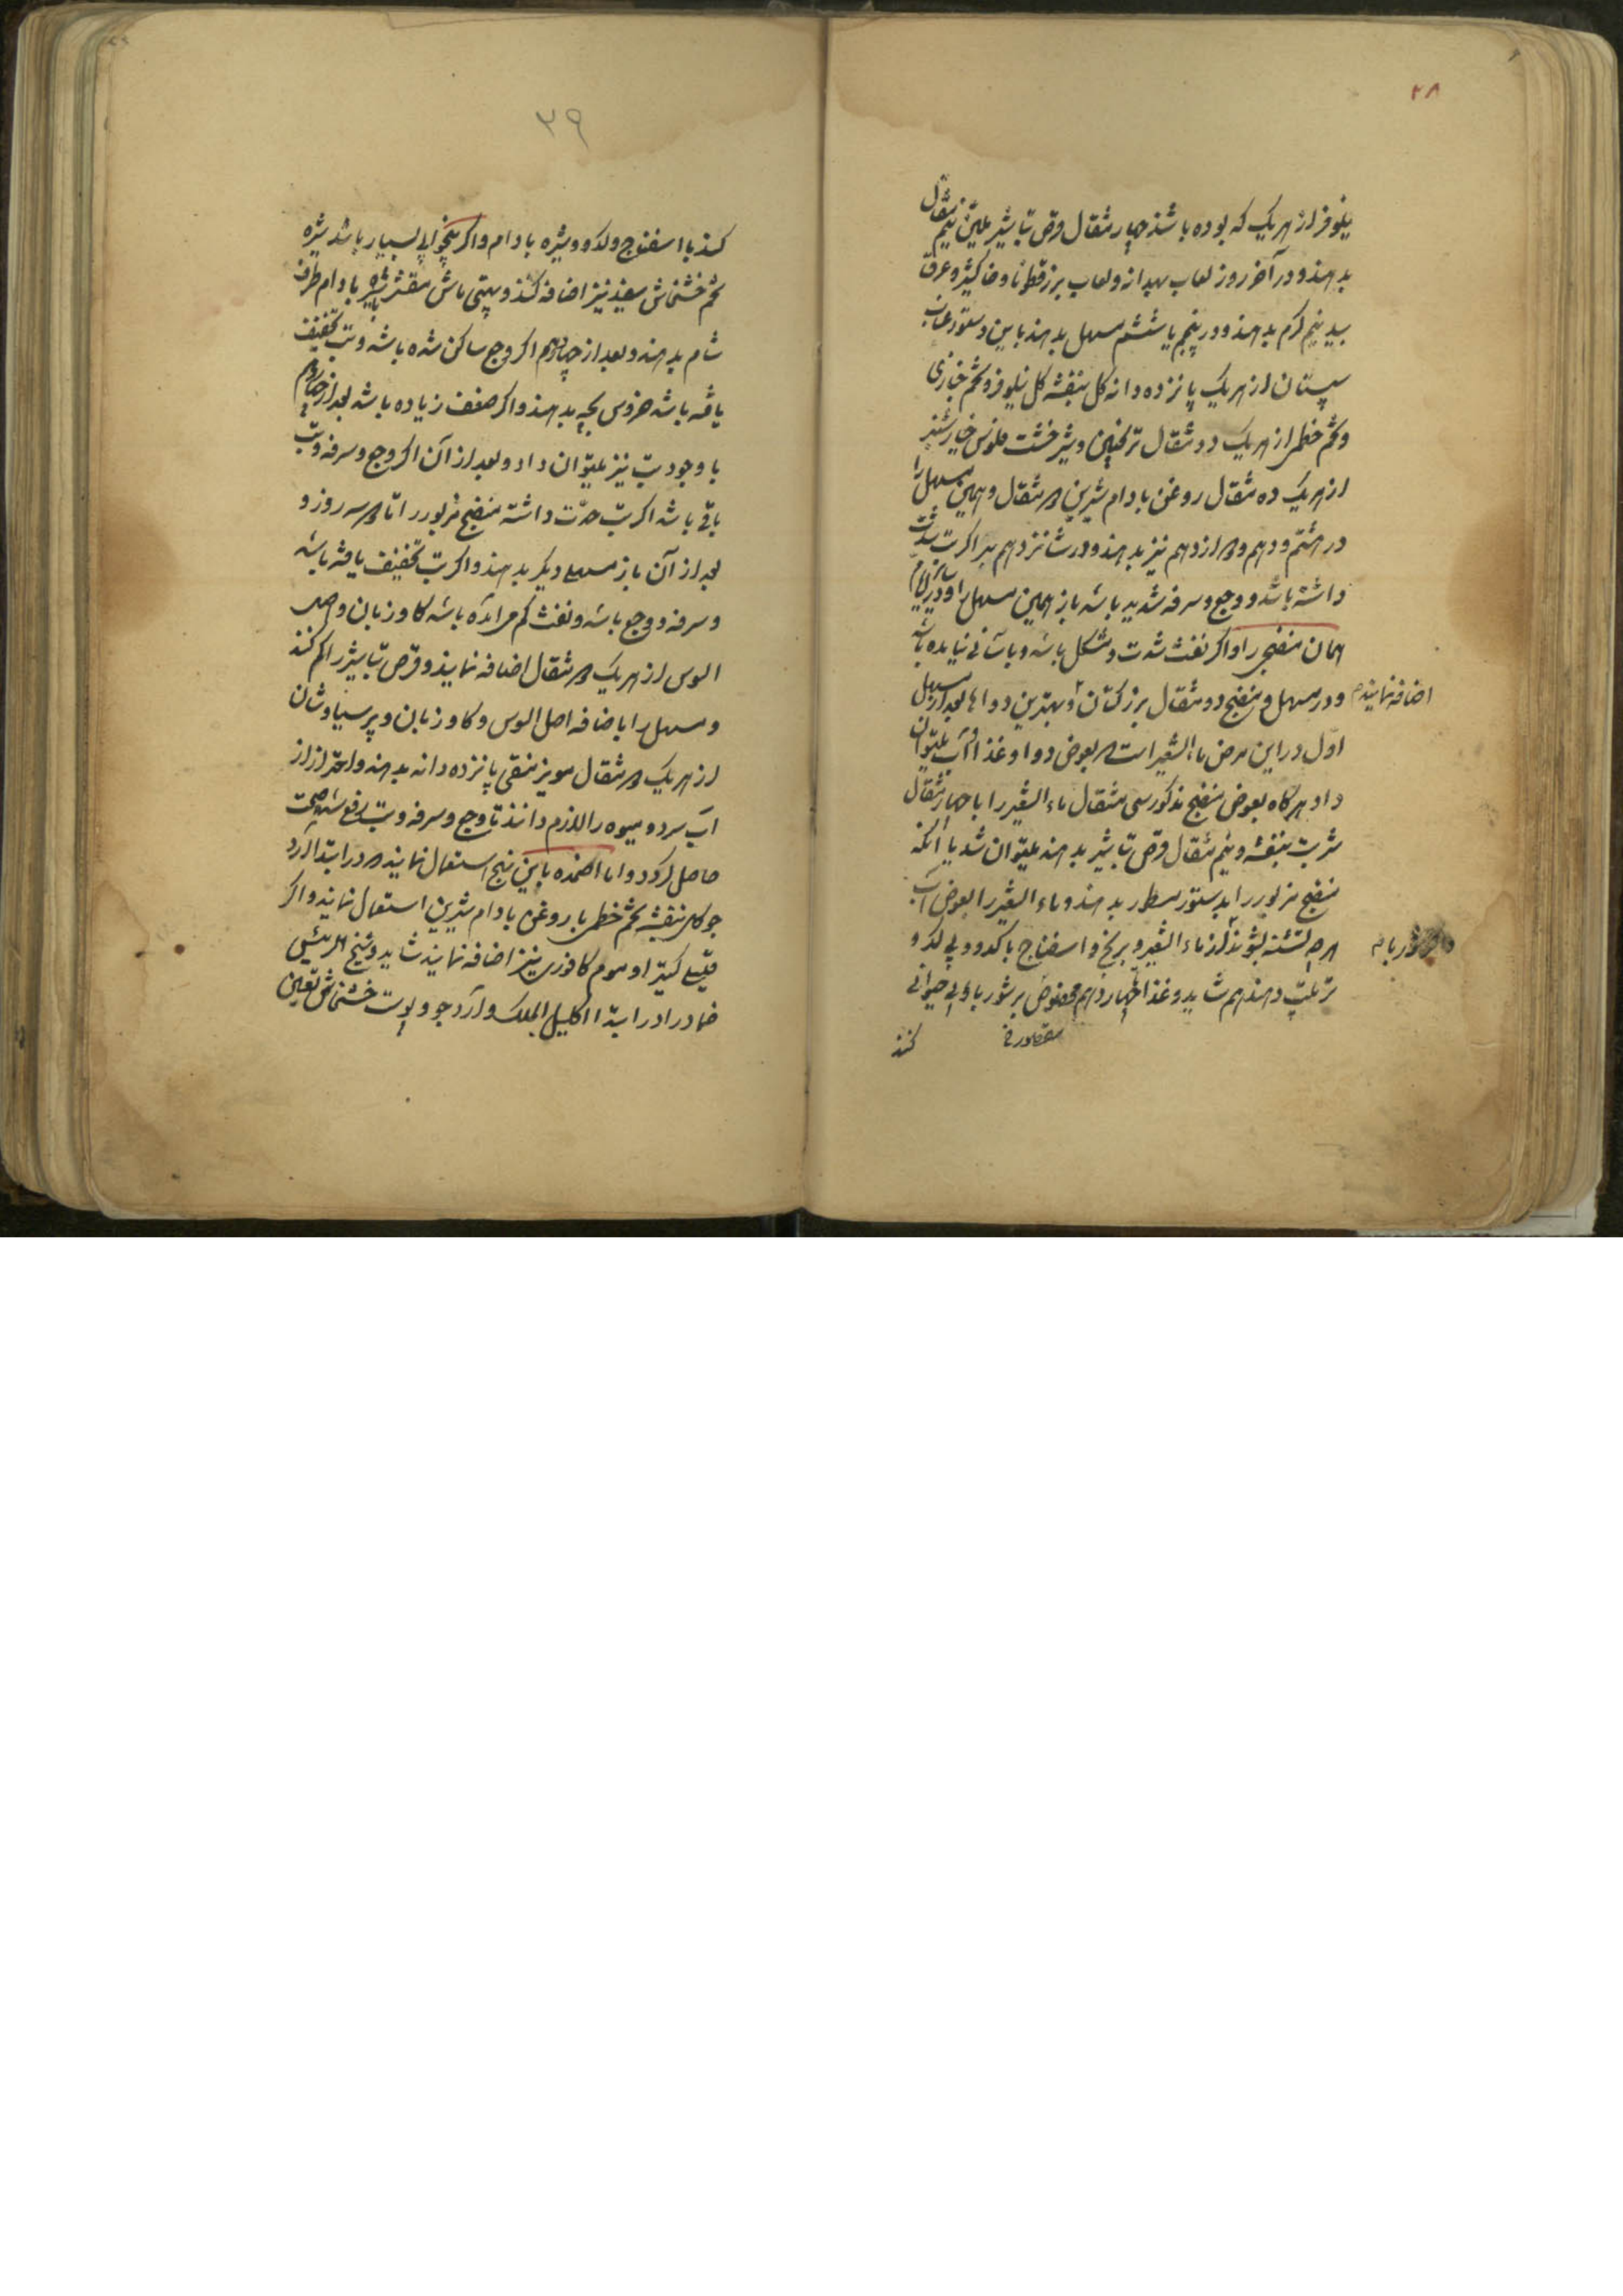 ۳۸
نیلوفر از هر یک که بوده باشد چهار مثقال و قرص تباشیر ملین نیم مثقال
بدهند و در آخر روز لعاب بهدانه و لعاب بزرقطونا و خاکشیر و عرق
بید نیم گرم بدهند و در پنجم یا ششم مسهل بدهند باین دستور عناب
سپستان از هر یک پانزده دانه گل بنفشه گل نیلوفر و تخم خبازی
و تخم خطمی از هر یک دو مثقال ترنجبین و شیرخشت فلوس خیارشنبر
از هر یک ده مثقال روغن بادام شیرین مثقال و همین مسهل را
در هشتم و دهم و دوازدهم نیز بدهند و در شانزدهم اگر تب شدت
داشته باشد و وجع و سرفه شدید باشد باز همین مسهل را و در سایر ایام
همان منضج را و اگر نفث شدت و مشکل باشد و باسانی نیاید
و در مسهل و منضج دو مثقال بزر کتان و بهترین دواها بعد از مسهل
اضافه نمایند
اول در این مرض ماء الشعیر است که بعوض دوا و غذا و آب میتوان
داد هرگاه بعوض منضج مذکور سی مثقال ماء الشعیر را با چهار مثقال
شربت بنفشه و نیم مثقال قرص تباشیر بدهند میتوان شد یا آنکه
منضج مزبور را بدستور مسطور بدهند و ماء الشعیر را بعوض آب
هرچه تشنه بشوند از ماء الشعیر و برنج و اسفناج با کدو و
ترتیب دهند هم شاید و غذا تا چهاردهم بر شوربای بی حیوانی
کنند
۳۹
کنند با اسفناج و کدو و شیره بادام و اگر بیخوابی بسیار باشد شیره
تخم خشخاش سفید نیز اضافه کنند و ماش مقشر با شیره بادام طرف
شام بدهند و بعد از چهاردهم اگر وجع ساکن شده باشد و تب تخفیف
یافته باشد خروس بچه بدهند و اگر ضعف زیاده باشد بعد از چهاردهم
با وجود تب نیز میتوان داد و بعد از آن اگر وجع و سرفه و تب
باقی باشد اگر تب حدت داشته منضج مزبور را تا سه روز و
بعد از آن باز مسهل دیگر بدهند و اگر تب تخفیف یافته باشد
و سرفه و وجع باشد و نفث کم برآمده باشد گاوزبان و اصل
السوس از هر یک مثقال اضافه نمایند و قرص تباشیر را کم کنند
و مسهل را با اضافه اصل السوس و گاوزبان و پرسیاوشان
از هر یک مثقال مویز منقی پانزده دانه بدهند و احتراز از
آب سرد و میوه را لازم دانند تا وجع و سرفه و تب رفع شده صحت
حاصل گردد و اما اضمده باین نهج استعمال نمایند که در ابتدا آرد
جو گل بنفشه تخم خطمی با روغن بادام شیرین استعمال نمایند و اگر
کتیرا و موم کافوری نیز اضافه نمایند شاید و شیخ الرئیس
ضماد را در ابتدا اکلیل الملک و آرد جو و پوست خشخاش تعیین